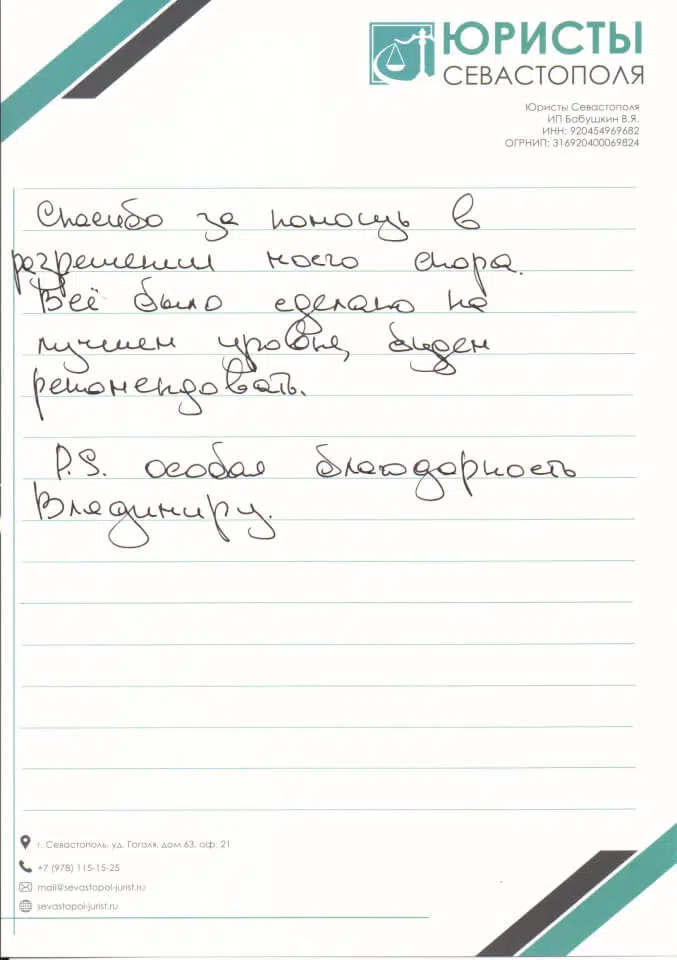 ЮРИСТЫ
СЕВАСТОПОЛЯ
Юристы Севастополя
ИП Бабушкин В.Я.
ИНН: 920454969682
ОГРНИП: 316920400069824
Спасибо за помощь в
разрешении моего спора.
Всё было сделано на
лучшем уровне, будем
рекомендовать.
P.S. особая благодарность
Владимиру.
г. Севастополь, уд. Гоголя, дом 63, оф. 21
+7 (978) 115-15-25
mail@sevastopol-jurist.ru
sevastopol-jurist.ru